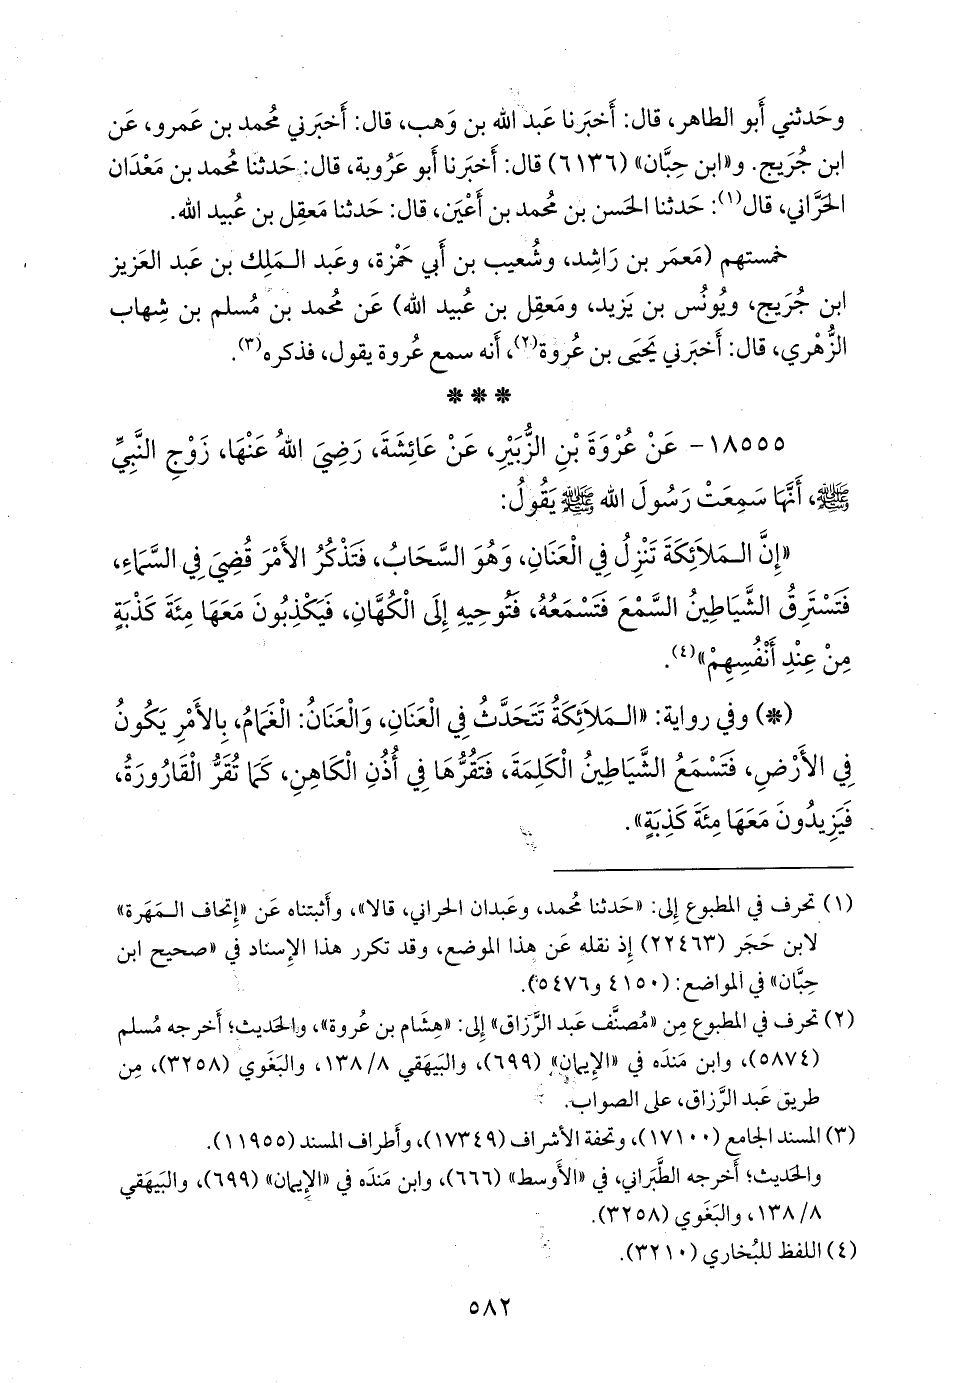 وحَدثني أَبو الطاهر، قال: أَخبَرنا عَبد الله بن وَهب، قال: أَخبَرني مُحمد بن عَمرو، عَن
ابن جُرَيج. و«ابن حِبَّان» (٦١٣٦) قال: أَخبَرنا أَبو عَرُوبة، قال: حَدثنا مُحمد بن مَعْدَان
الحَرَّاني، قال(١): حَدثنا الحَسن بن مُحمد بن أَعْيَن، قال: حَدثنا مَعقِل بن عُبيد الله.
خمستهم (مَعمَر بن رَاشِد، وشُعيب بن أَبي حَمْزة، وعَبد الـمَلِك بن عَبد العَزيز
ابن جُرَيج، ويُونُس بن يَزيد، ومَعقِل بن عُبيد الله) عَن مُحمد بن مُسلم بن شِهاب
الزُّهْري، قال: أَخبَرني يَحيَى بن عُروة(٢)، أَنه سمع عُروة يقول، فذكره(٣).
* * *
١٨٥٥٥- عَنْ عُرْوَةَ بْنِ الزُّبَيْرِ، عَنْ عَائِشَةَ، رَضِيَ اللهُ عَنْهَا، زَوْجِ النَّبِيِّ
ﷺ، أَنَّهَا سَمِعَتْ رَسُولَ الله ﷺ يَقُولُ:
«إِنَّ الـمَلاَئِكَةَ تَنْزِلُ فِي الْعَنَانِ، وَهُوَ السَّحَابُ، فَتَذْكُرُ الأَمْرَ قُضِيَ فِي السَّمَاءِ،
فَتَسْتَرِقُ الشَّيَاطِينُ السَّمْعَ فَتَسْمَعُهُ، فَتُوحِيهِ إِلَى الْكُهَّانِ، فَيَكْذِبُونَ مَعَهَا مِئَةَ كَذْبَةٍ
مِنْ عِنْدِ أَنْفُسِهِمْ»(٤).
(*) وفي رواية: «الـمَلاَئِكَةُ تَتَحَدَّثُ فِي الْعَنَانِ، وَالْعَنَانُ: الْغَمَامُ، بِالأَمْرِ يَكُونُ
فِي الأَرْضِ، فَتَسْمَعُ الشَّيَاطِينُ الْكَلِمَةَ، فَتَقُرُّهَا فِي أُذُنِ الْكَاهِنِ، كَمَا تُقَرُّ الْقَارُورَةُ،
فَيَزِيدُونَ مَعَهَا مِئَةَ كَذِبَةٍ».
(١) تحرف في المطبوع إلى: «حَدثنا مُحمد، وعَبدان الحراني، قالا»، وأَثبتناه عَن «إتحاف الـمَهَرة»
لابن حَجَر (٢٢٤٦٣) إذ نقله عَن هذا الموضع، وقد تكرر هذا الإِسناد في «صحيح ابن
حِبَّان» في المواضع: (٤١٥٠ و٥٤٧٦).
(٢) تحرف في المطبوع مِن «مُصنَّف عَبد الرَّزاق» إلى: «هِشَام بن عُروة»، والحَديث؛ أَخرجه مُسلم
(٥٨٧٤)، وابن مَندَه في «الإِيمان» (٦٩٩)، والبَيهَقي ٨/ ١٣٨، والبَغَوي (٣٢٥٨)، مِن
طريق عَبد الرَّزاق، على الصواب.
(٣) المسند الجامع (١٧١٠٠)، وتحفة الأشراف (١٧٣٤٩)، وأطراف المسند (١١٩٥٥).
والحَديث؛ أَخرجه الطَّبَراني، في «الأَوسط» (٦٦٦)، وابن مَندَه في «الإِيمان» (٦٩٩)، والبَيهَقي
٨/ ١٣٨، والبَغَوي (٣٢٥٨).
(٤) اللفظ للبُخاري (٣٢١٠).
٥٨٢